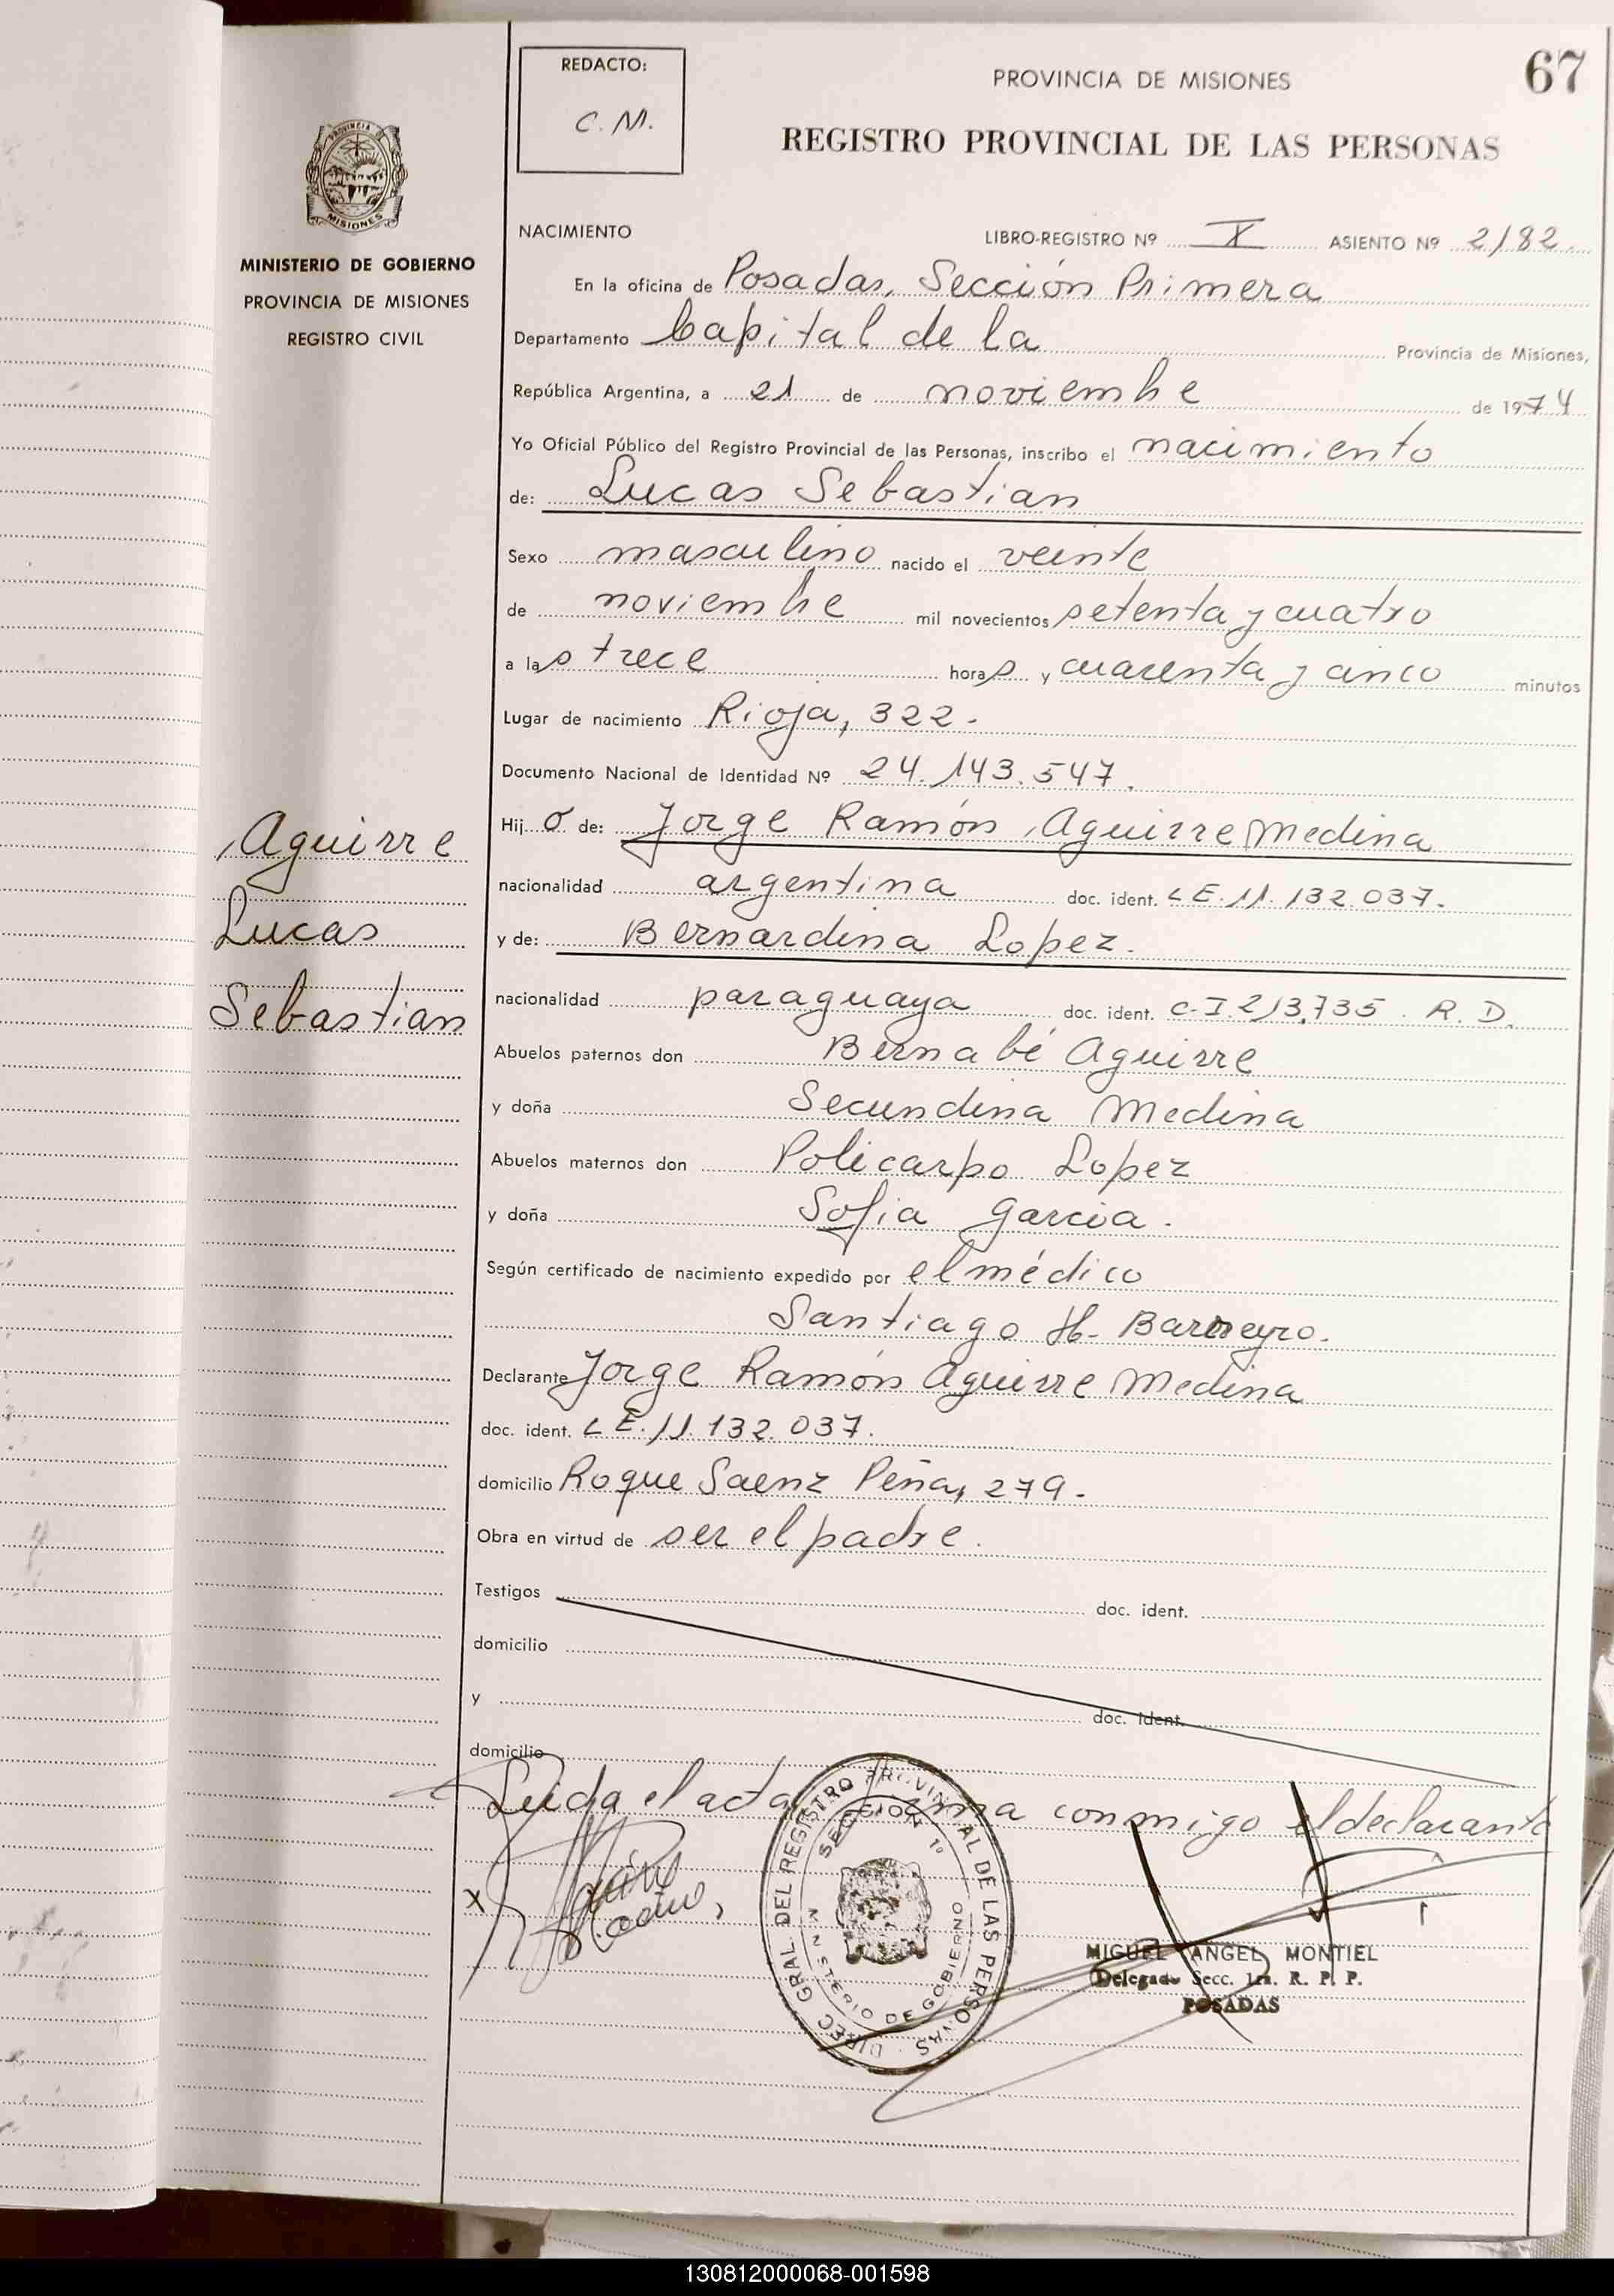 67
REDACTO:
C. M.
PROVINCIA DE MISIONES
REGISTRO PROVINCIAL DE LAS PERSONAS
MISIONES
MINISTERIO DE GOBIERNO
PROVINCIA DE MISIONES
REGISTRO CIVIL
NACIMIENTO LIBRO-REGISTRO Nº X ASIENTO Nº 2182.
En la oficina de Posadas, Sección Primera
Departamento Capital de la Provincia de Misiones,
República Argentina, a 21 de noviembre de 1974
Yo Oficial Público del Registro Provincial de las Personas, inscribo el nacimiento
de: Lucas Sebastian
Sexo masculino nacido el veinte
de noviembre mil novecientos setenta y cuatro
a las trece horas y cuarenta y cinco minutos
Lugar de nacimiento Rioja, 322.
Documento Nacional de Identidad Nº 24.143.547.
Hijo de: Jorge Ramón Aguirre Medina
nacionalidad argentina doc. ident. L E. 11. 132.037.
y de: Bernardina Lopez.
nacionalidad paraguaya doc. ident. C.I. 213.735. R. D.
Abuelos paternos don Bernabé Aguirre
y doña Secundina Medina
Abuelos maternos don Policarpo Lopez
y doña Sofia Garcia.
Según certificado de nacimiento expedido por el médico
Santiago H. Barreyro.
Declarante Jorge Ramón Aguirre Medina
doc. ident. L E. 11. 132. 037.
domicilio Roque Saenz Peña, 279.
Obra en virtud de ser el padre.
Testigos doc. ident.
domicilio
y doc. ident.
domicilio
Leida el acta firma conmigo el declarante
Aguirre
Lucas
Sebastian
X
DIREC. GRAL. DEL REGISTRO PROVINCIAL DE LAS PERSONAS
SECCION 1º
MINISTERIO DE GOBIERNO
MIGUEL ANGEL MONTIEL
Delegado Secc. 1ra. R. P. P.
POSADAS
130812000068-001598